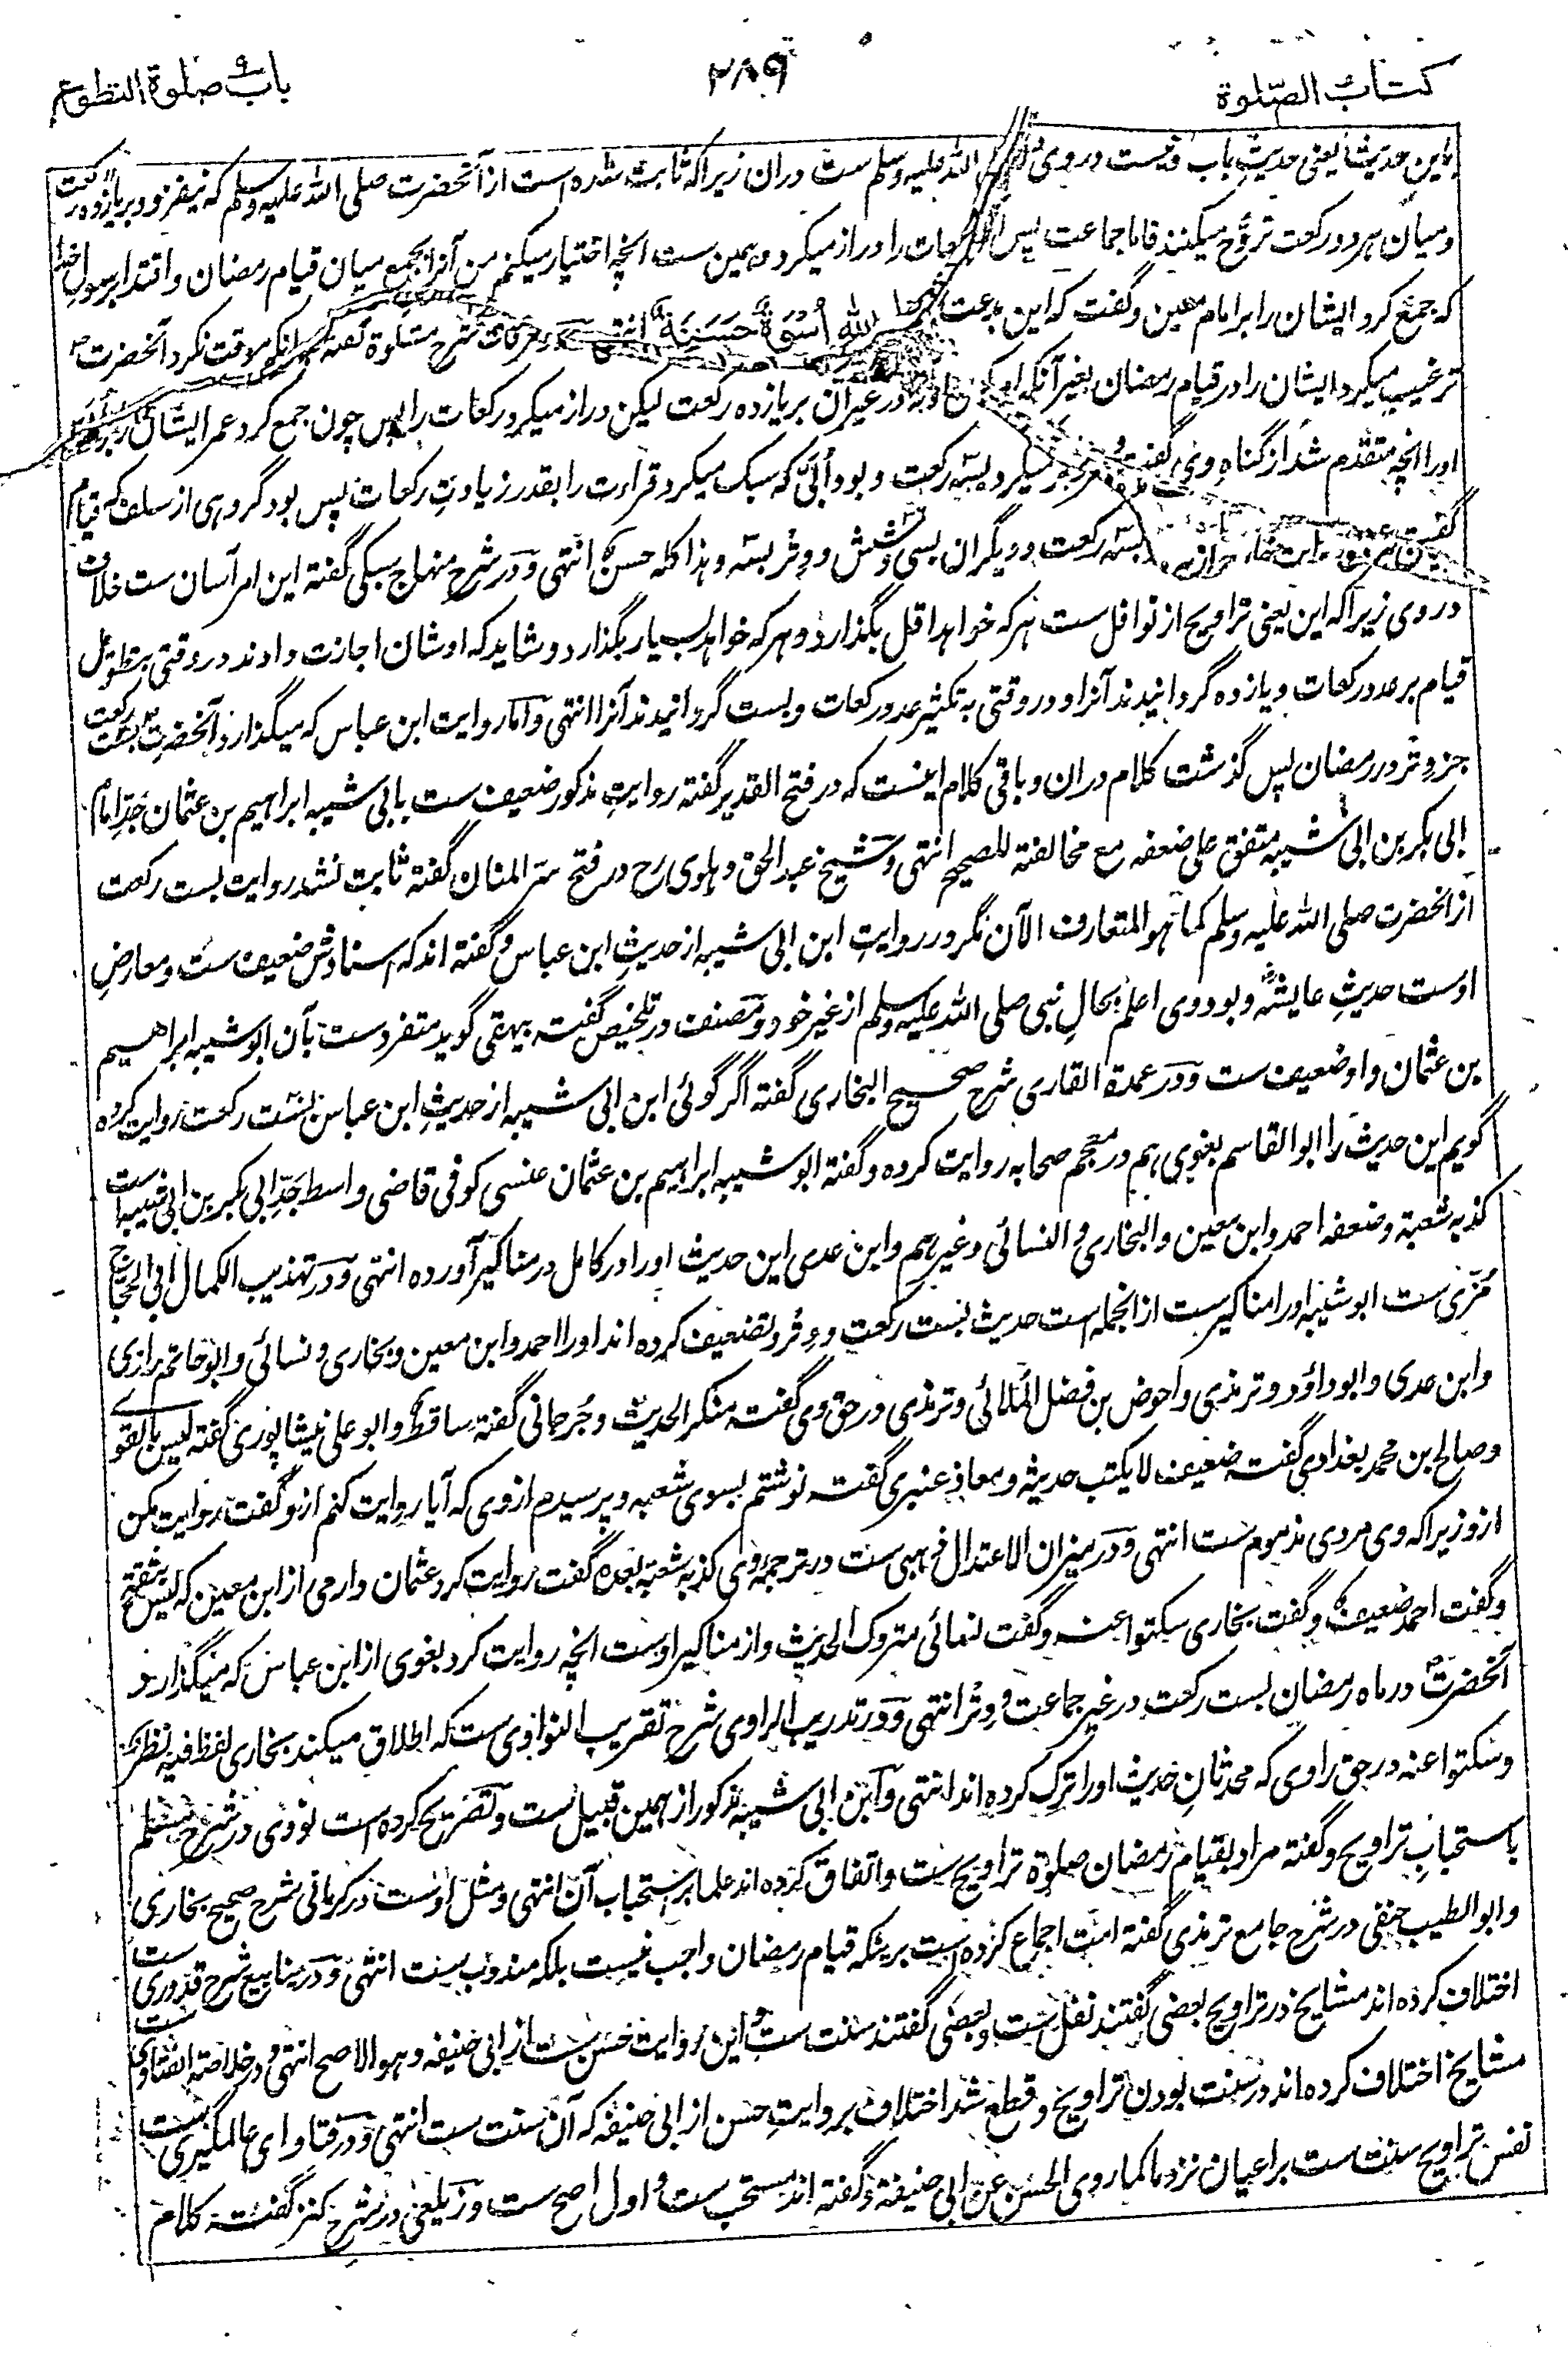 کتاب الصّلوة
۲۸۹
باب صلوة التطوع
باین حدیث یعنی حدیثِ باب و نیست در وی الله علیه وسلم ست دران زیراکه ثابت شده است از آنحضرت صلی الله علیه وسلم که نیفزود بر یازده رکعت
و میان هر دو رکعت تروُّح میکنند فاما جماعت پس را دراز میکرد و همین ست انچه اختیار میکنم من آنرا بجمع میان قیام رمضان و اقتدا برسولِ خدا
که جمع کرد ایشان را بر امام معین و گفت که این بدعت الله اُسْوَةٌ حَسَنَةٌ انتهی شرح مشکوة گفته وقت نکرد آنحضرت ؐ
ترغیب میکرد ایشان را در قیام رمضان بغیر آنکه در غیر آن بر یازده رکعت لیکن دراز میکرد رکعات را پس چون جمع کرد عمر ایشان را
اورا انچه متقدم شد از گناه وی میکرد بسه رکعت و بود اُبَیّ که سبک میکرد قراءت را بقدر زیادتِ رکعات پس بود گروهی از سلف که قیام
بسه رکعت و دیگران بسی و شش و وتر بسه و هذا کله حسن انتهی و در شرح منهاج سبکی گفته این امر آسان ست خلاف
در وی زیراکه این یعنی تراویح از نوافل ست هر که خواهد اقل بگذارد و هر که خواهد بسیار بگذارد و شاید که اوشان اجازت دادند در وقتی بتطویل
قیام بر عدد رکعات و یازده گردانیدند آنرا و در وقتی به تکثیر عدد رکعات و بست گردانیدند آنرا انتهی و اما روایت ابن عباس که میگذارد آنحضرت ؐ بست رکعت
جز وتر در رمضان پس گذشت کلام دران و باقی کلام اینست که در فتح القدیر گفته روایتِ مذکور ضعیف ست بابی شیبه ابراهیم بن عثمان جَدِّ امام
ابی بکر بن ابی شیبه متفق علی ضعفه مع مخالفته للصحیح انتهی و شیخ عبد الحق دهلوی رح در فتح سر المنان گفته ثابت نشد روایت بست رکعت
از آنحضرت صلی الله علیه وسلم کما هو المتعارف الآن مگر در روایتِ ابن ابی شیبه از حدیثِ ابن عباس و گفته اند که اسنادش ضعیف ست و معارضِ
اوست حدیثِ عایشه و بود وی اعلم بحالِ نبی صلی الله علیه وسلم از غیر خود و مصنف در تلخیص گفته بیهقی گوید متفرد ست بآن ابو شیبه ابراهیم
بن عثمان و او ضعیف ست و در عمدة القاری شرح صحیح البخاری گفته اگر گوئی ابن ابی شیبه از حدیثِ ابن عباس بست رکعت روایت کرده
گویم این حدیث را ابو القاسم بغوی هم در معجم صحابه روایت کرده و گفته ابو شیبه ابراهیم بن عثمان عنسی کوفی قاضی واسط جَدِّ ابی بکر بن ابی شیبه است
کذبه شعبة و ضعفه احمد و ابن معین و البخاری و النسائی و غیرهم و ابن عدی این حدیث اورا در کامل در مناکیر آورده انتهی و در تهذیب الکمال ابی الحجاج
مُزّی ست ابو شیبه اورا مناکیر ست ازانجمله است حدیث بست رکعت و وتر و تضعیف کرده اند اورا احمد و ابن معین و بخاری و نسائی و ابو حاتم رازی
و ابن عدی و ابو داؤد و ترمذی و احوص بن فضل المُلائی و ترمذی در حق وی گفته منکر الحدیث و جُرجانی گفته ساقط و ابو علی نیشاپوری گفته لیس بالقوے
و صالح بن محمد بغدادی گفته ضعیف لا یکتب حدیثه و معاذ عنبری گفته نوشتم بسوی شعبه و پرسیدم از وی که آیا روایت کنم ازو گفت روایت مکن
ازو زیراکه وی مردی مذموم ست انتهی و در میزان الاعتدال ذهبی ست در ترجمۂ وی کذبه شعبة بعده گفت روایت کرد عثمان دارمی از ابن معین که لیس بثقة
و گفت احمد ضعیف و گفت بخاری سکتوا عنه و گفت نسائی متروک الحدیث و از مناکیر اوست انچه روایت کرد بغوی از ابن عباس که میگذارد
آنحضرت ؐ در ماه رمضان بست رکعت در غیر جماعت و وتر انتهی و در تدریب الراوی شرح تقریب النواوی ست که اطلاق میکند بخاری لفظ فیه نظر
و سکتوا عنه در حق راوی که محدثان حدیث اورا ترک کرده اند انتهی و ابن ابی شیبه مذکور از همین قبیل ست و تصریح کرده است نووی در شرح مسلم
باستحبابِ تراویح و گفته مراد بقیام رمضان صلوة تراویح ست و اتفاق کرده اند علما بر استحباب آن انتهی و مثل اوست در کرمانی شرح صحیح بخاری
و ابو الطیب حنفی در شرح جامع ترمذی گفته امت اجماع کرده است برینکه قیام رمضان واجب نیست بلکه مندوب ست انتهی و در ینابیع شرح قدوری ست
اختلاف کرده اند مشایخ در تراویح بعضی گفتند نفل ست و بعضی گفتند سنت ست و این روایت حسن ست از ابی حنیفه و هو الاصح انتهی و در خلاصة الفتاوی ست
مشایخ اختلاف کرده اند در سنت بودن تراویح و قطع شد اختلاف بروایتِ حسن از ابی حنیفه که آن سنت ست انتهی و در فتاوای عالمگیری ست
نفس تراویح سنت ست بر اعیان نزد ما کما روی الحسن عن ابی حنیفة و گفته اند مستحب ست و اول اصح ست و زیلعی در شرح کنز گفته کلام